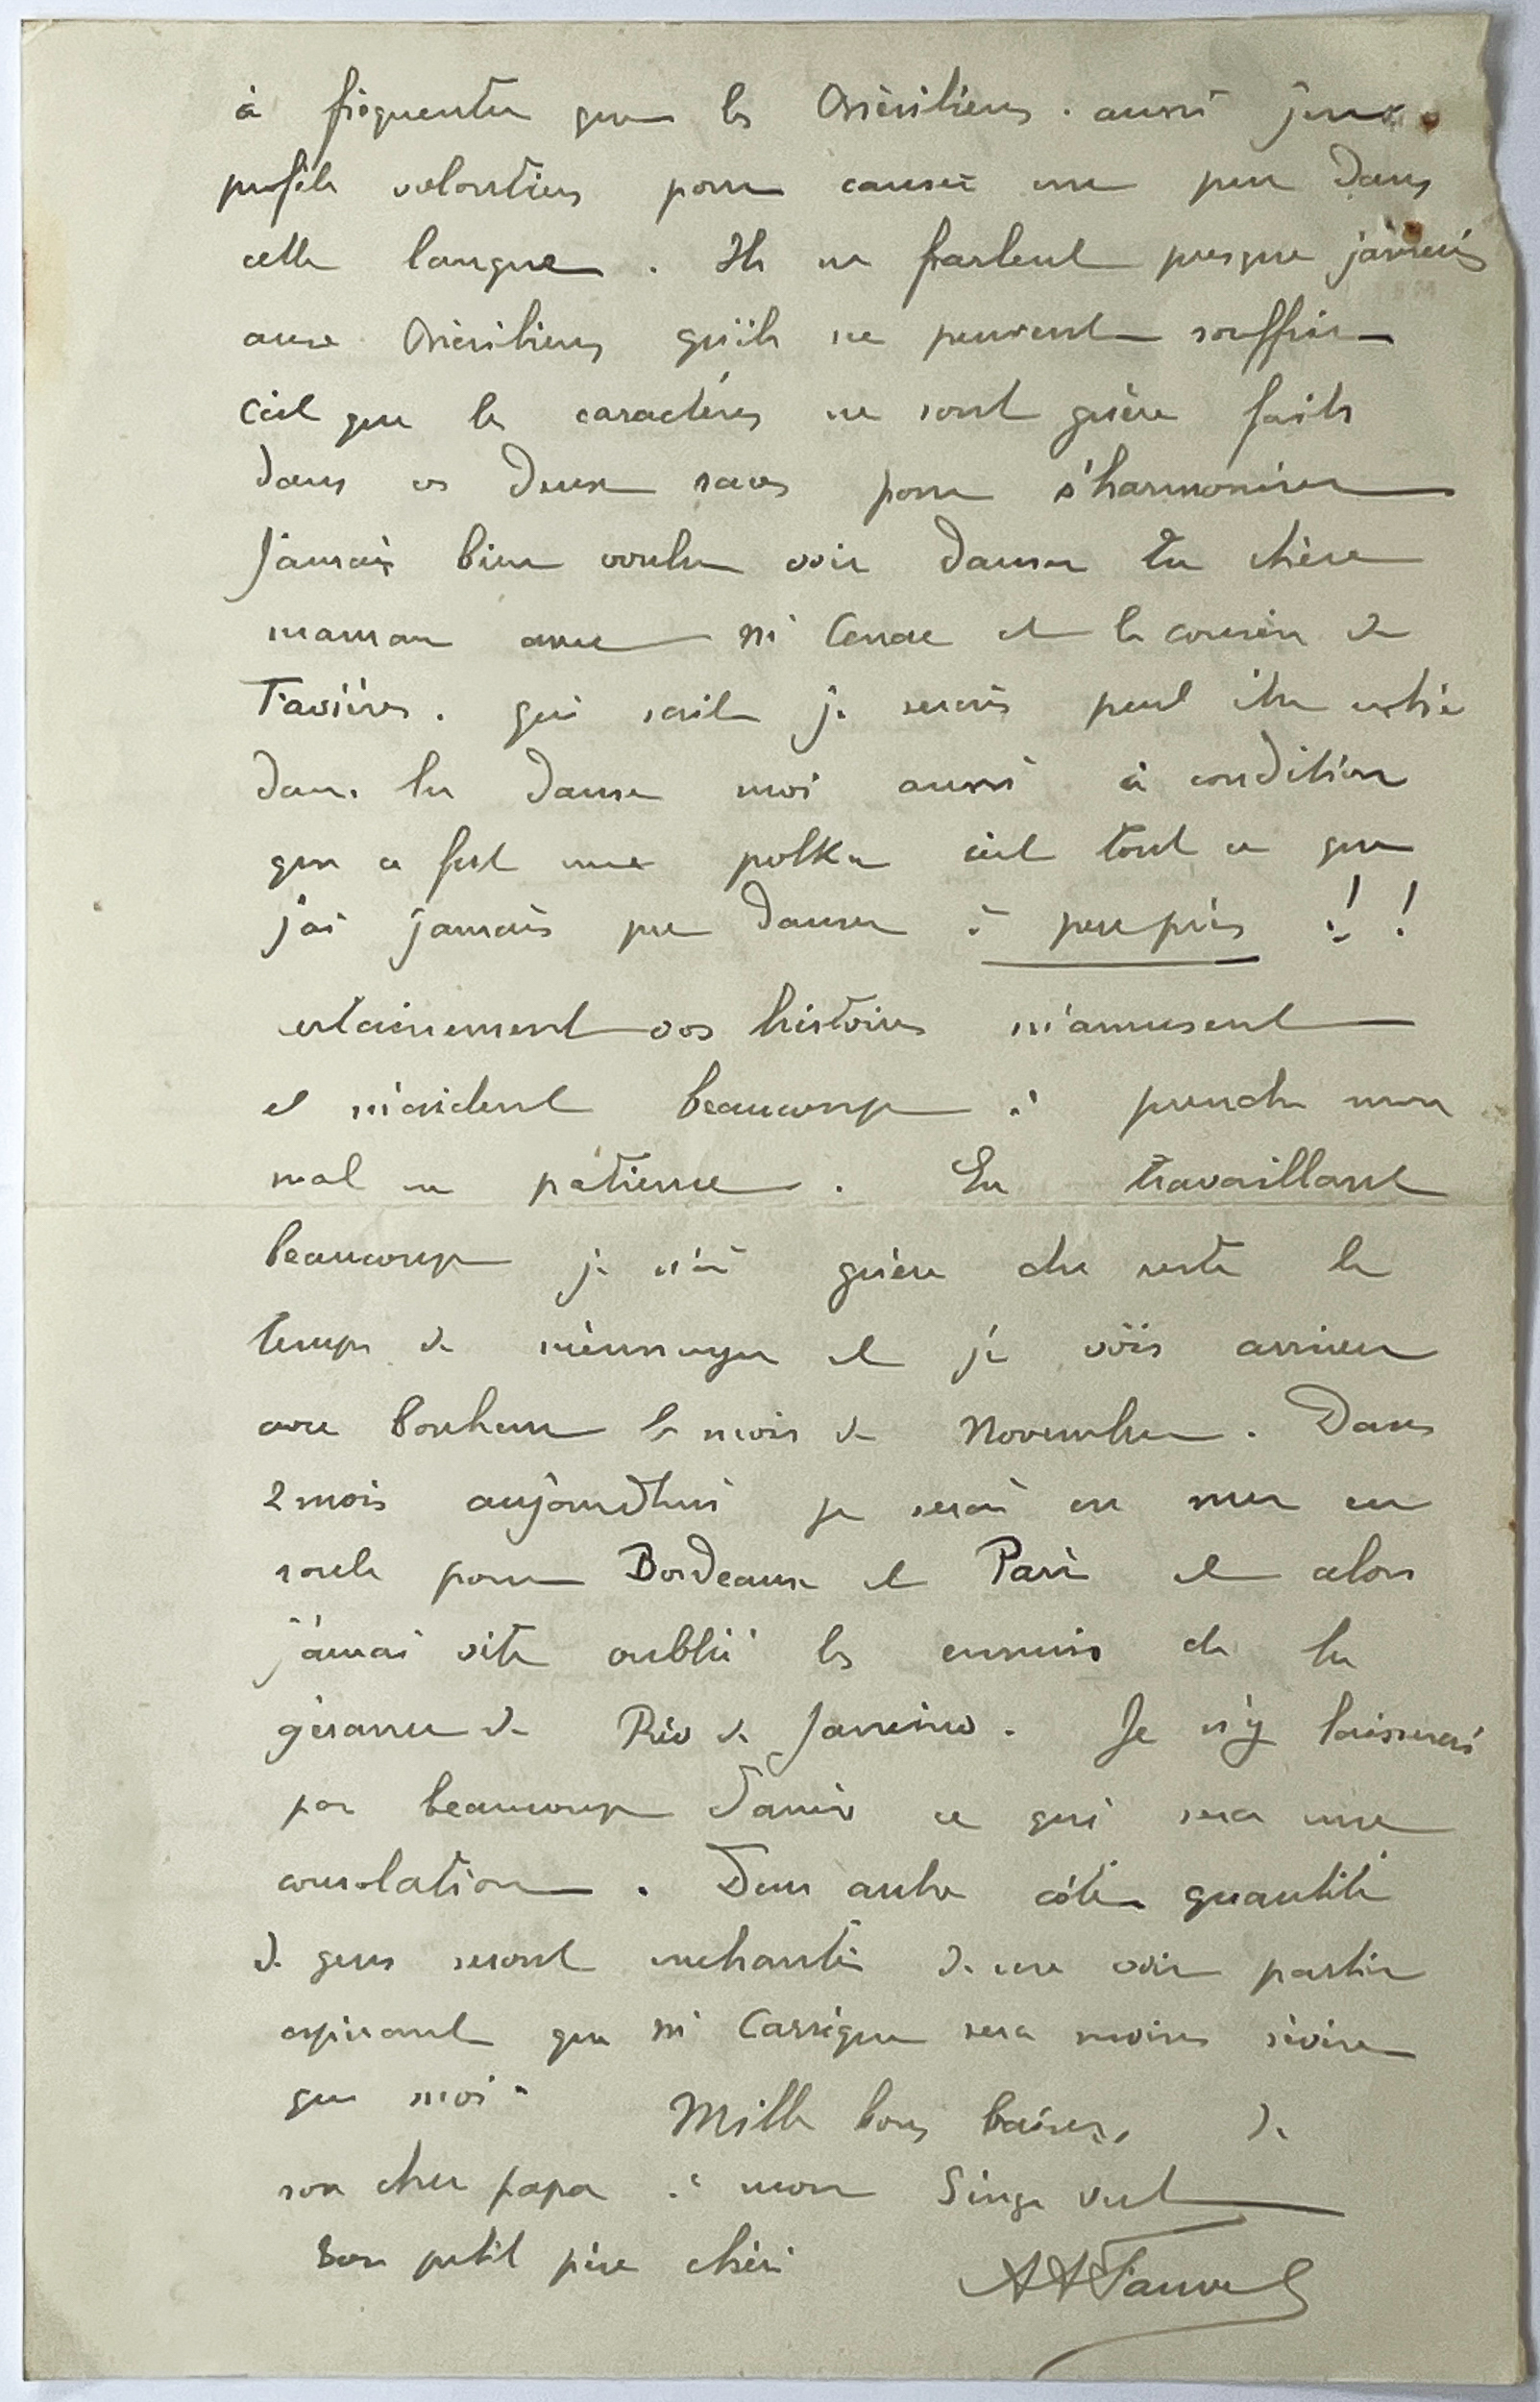 à fréquenter que les Brésiliens. aussi j'en
profite volontiers pour causer un peu dans
cette langue. Ils ne parlent presque jamais
aux Brésiliens qu'ils ne peuvent souffrir
C'est que les caractères ne sont guère faits
dans ces deux races pour s'harmoniser
J'aurais bien voulu voir danser ta chère
maman avec Mr et le cousin de
Tavières. qui sait je serais peut être entré
dans la danse moi aussi à condition
que ce fut une polka c'est tout ce que
j'ai jamais pu danser à peu près !!
certainement vos histoires m'amusent
et m'aident beaucoup à prendre mon
mal en patience. En travaillant
beaucoup je n'ai guère du reste le
temps de m'ennuyer et je vois arriver
avec bonheur le mois de Novembre. Dans
2 mois aujourdhui je serai en mer en
route pour Bordeaux et Paris et alors
j'aurai vite oublié les ennuis de la
gérance de Rio de Janeiro. Je n'y laisserai
pas beaucoup d'amis ce qui sera une
consolation. D'un autre côté quantité
de gens seront enchantés de me voir partir
espérant que Mr Carrigue sera moins sévère
que moi.
Mille bons baisers, de
son cher papa à mon Singe vert
Son petit père chéri
AAFauvel